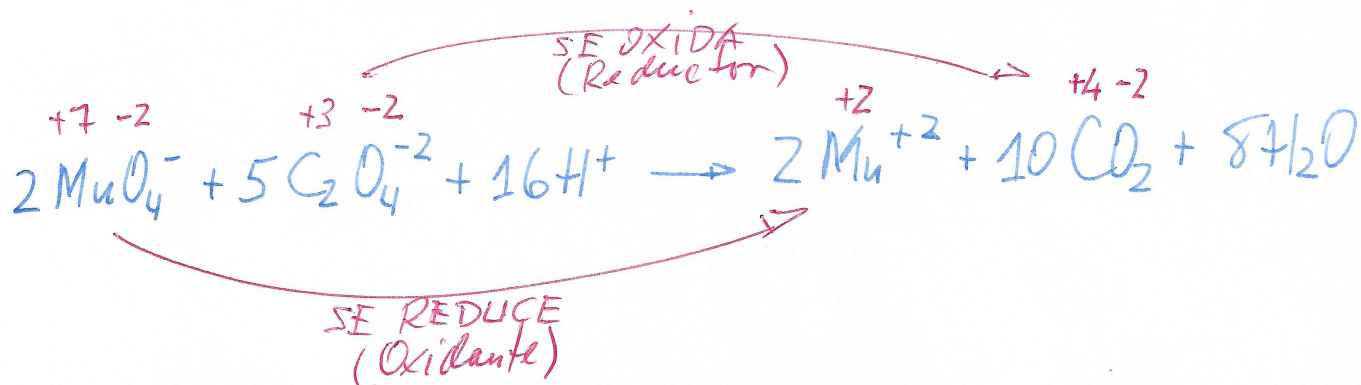 SE OXIDA
(Reductor)
+7 -2 +3 -2 +2 +4 -2
2 MnO₄⁻ + 5 C₂O₄⁻² + 16 H⁺ → 2 Mn⁺² + 10 CO₂ + 8 H₂O
SE REDUCE
(Oxidante)